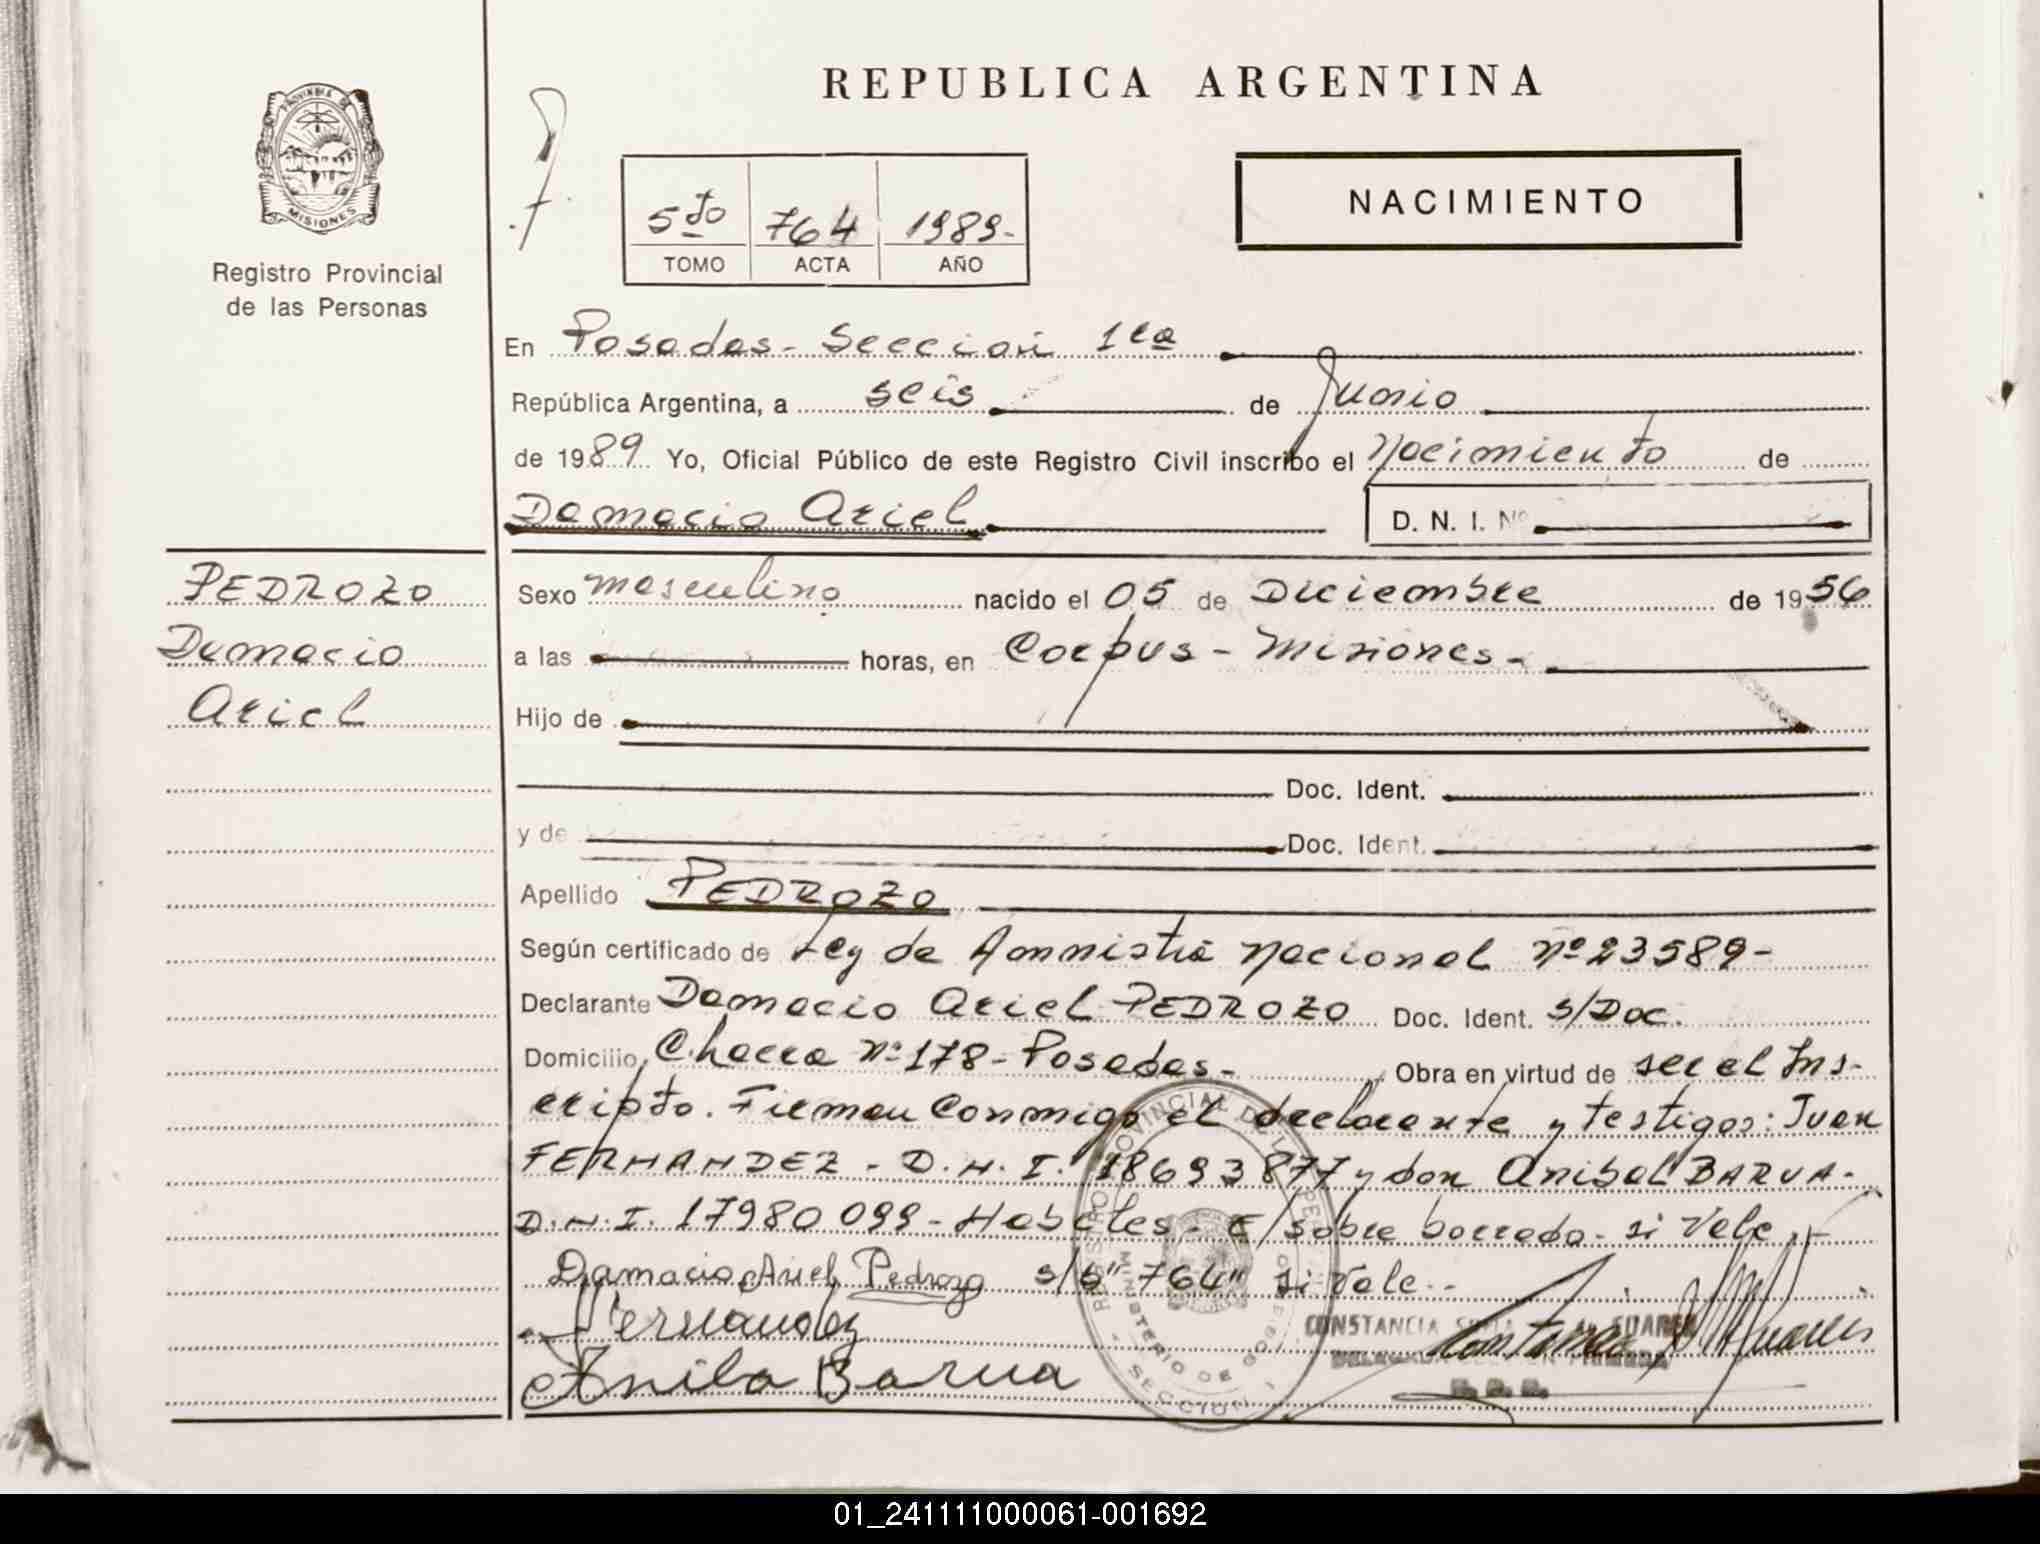 REPUBLICA ARGENTINA
PROVINCIA DE
MISIONES
Registro Provincial
de las Personas
5to 764 1989-
TOMO ACTA AÑO
NACIMIENTO
En Posadas - Sección 1ra
República Argentina, a seis de Junio
de 1989 Yo, Oficial Público de este Registro Civil inscribo el Nacimiento de
Damacio Ariel
D. N. I. Nº
PEDROZO
Damacio
Ariel
Sexo masculino nacido el 05 de Diciembre de 1956
a las horas, en Corpus - Misiones -
Hijo de
Doc. Ident.
y de Doc. Ident.
Apellido PEDROZO
Según certificado de Ley de Amnistía Nacional Nº 23589-
Declarante Damacio Ariel PEDROZO Doc. Ident. s/Doc.
Domicilio Chacra Nº 178 - Posadas - Obra en virtud de ser el Ins-
cripto. Firman conmigo el declarante y testigos: Juan
FERNANDEZ - D.N.I. 18693877 y don Anibal BARUA -
D.N.I. 17980099 - Habiles - E/sobre borrado - si Vale
Damacio Ariel Pedrozo s/b "764" si Vale -
Fernandez
Anila Barua
REGISTRO PROVINCIAL DE LAS PERSONAS
MINISTERIO DE GOBIERNO
SECCION 1
CONSTANCIA DE SUAREZ
DELEGADA SECCION PRIMERA
01_241111000061-001692